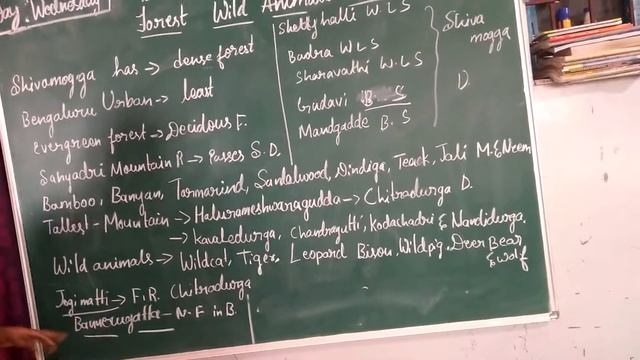 day, Wednesday
Forest Wild Anima
Shivamogga has → dense forest
Bengaluru Urban → least
Evergreen forest → Decidous F.
Sahyadri Mountain R → Passes S. D.
Bamboo, Banyan, Tarmarind, Sandalwood, Dindiga, Teack, Jali M. & Neem
Tallest - Mountain → Halurameshwaragudda → Chitradurga D.
→ Kavaledurga, Chandragutti, Kodachadri & Nandidurga.
Wild animals → Wildcat, Tiger Leopard Bison, Wildpig, Deer Bear
& wolf
Jogimatti → F. R. Chitradurga
Bannerugatta - N. F in B.
Shettyhalli W L S
Badra W L S
Sharavathi W. L S
Gudavi B. S
Mandgadde B. S
Shiva
mogga
D.